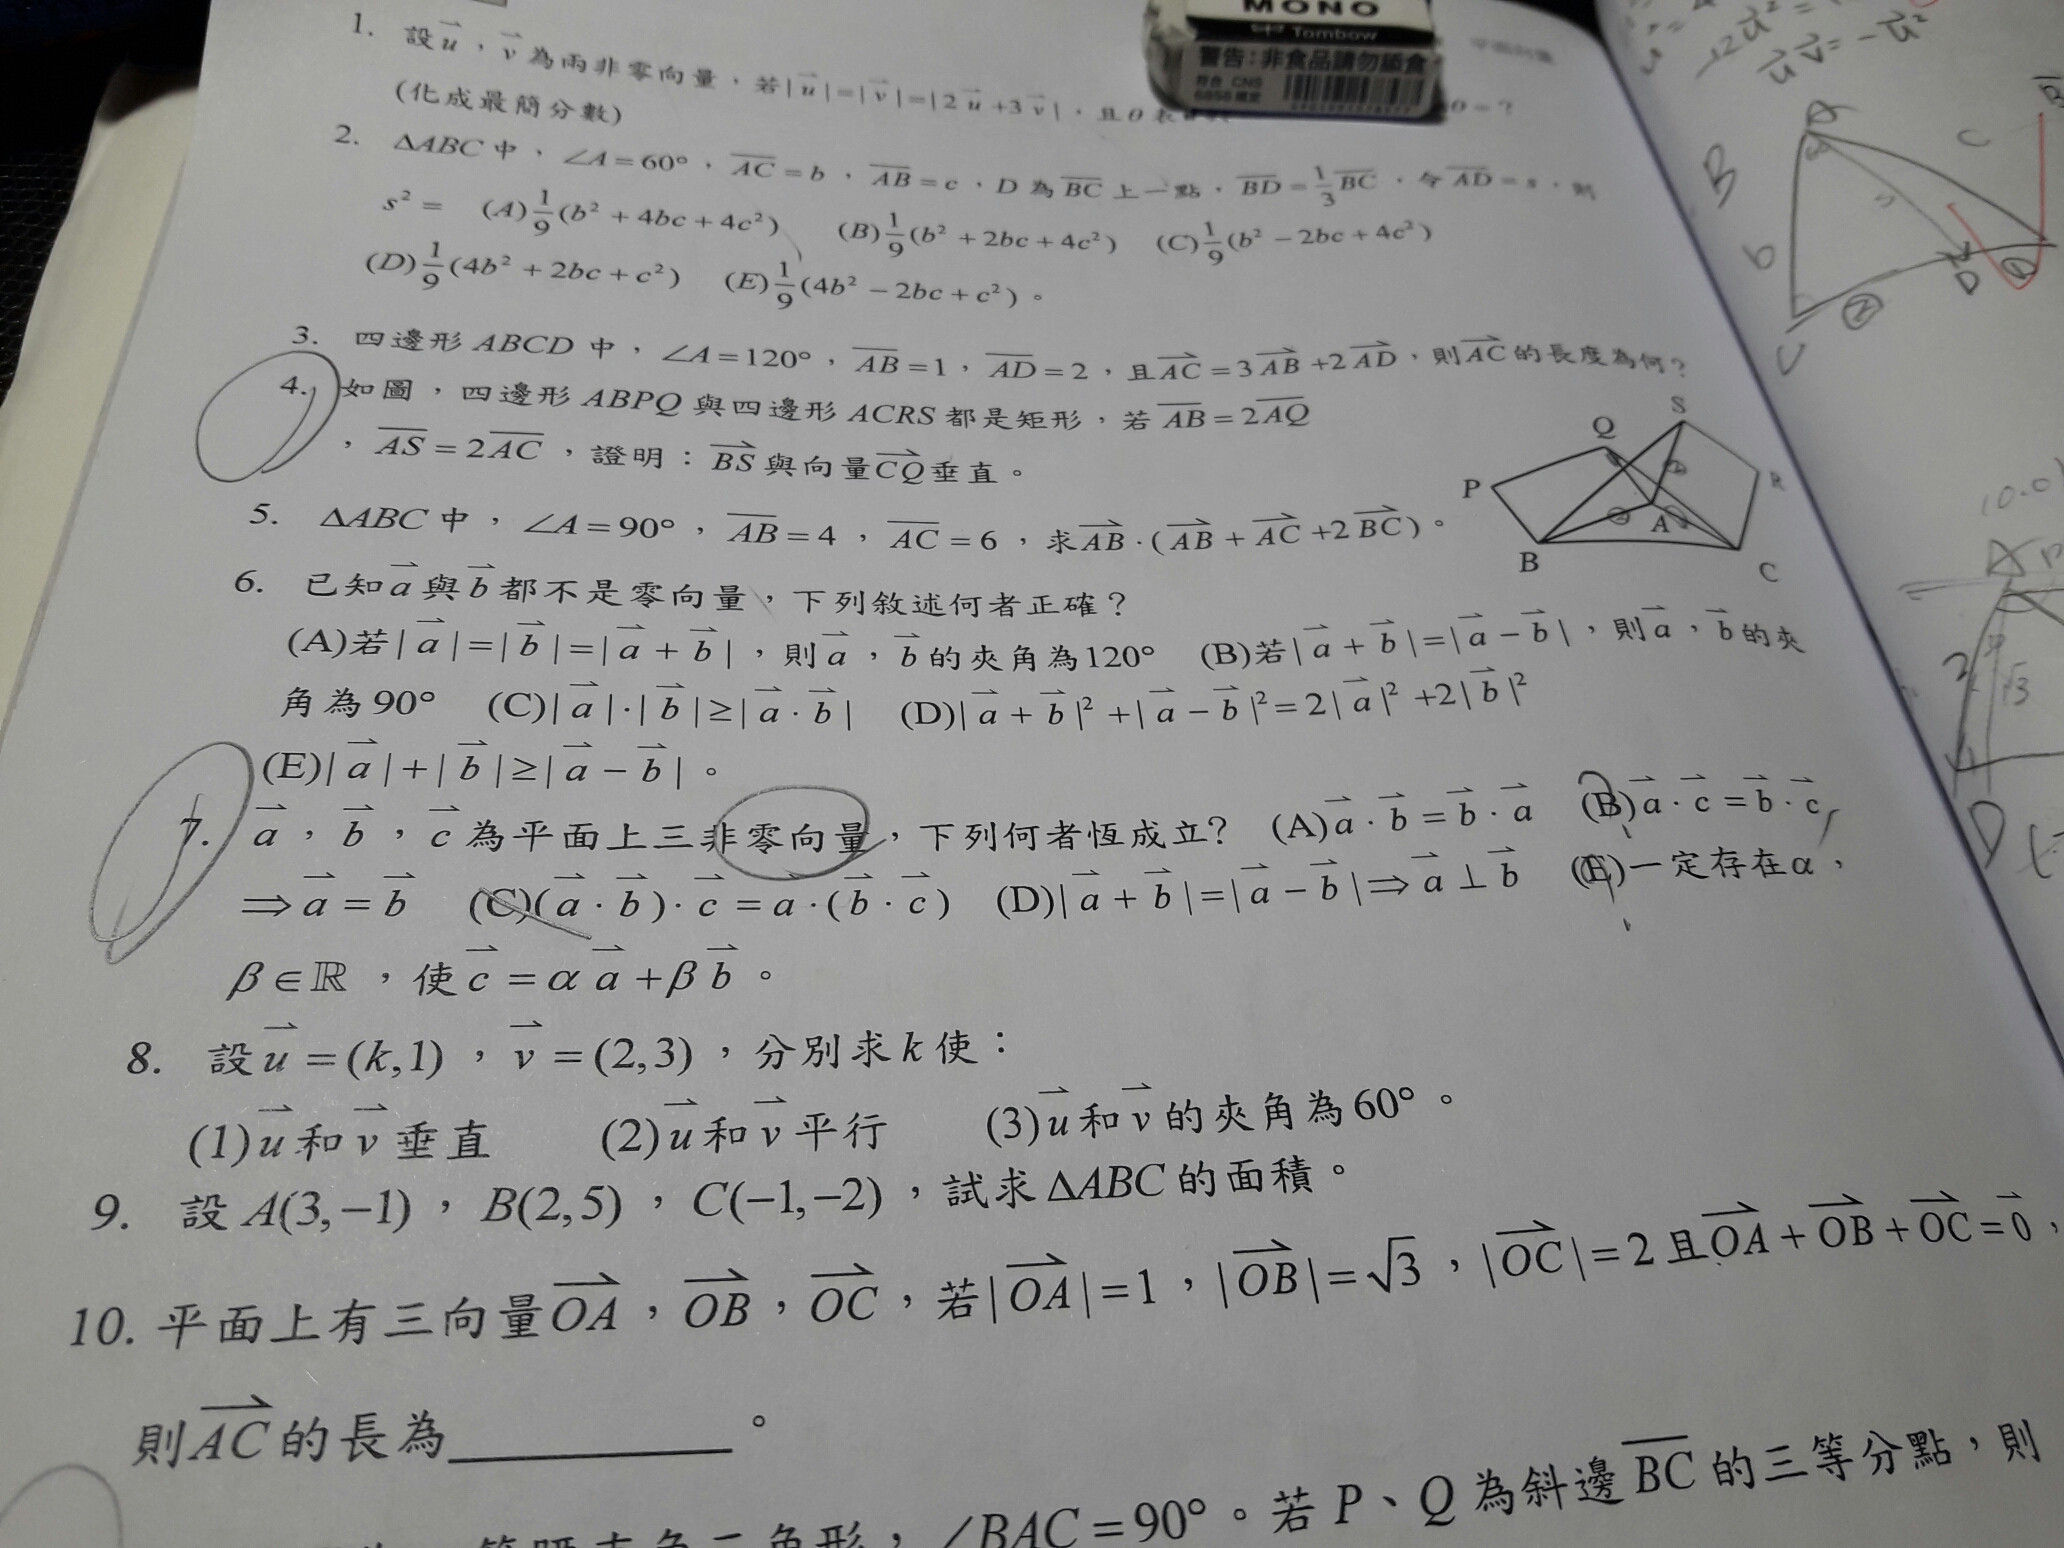 MONO
Tombow
警告:非食品請勿舔食
符合 CNS
1. 設 u⃗，v⃗ 為兩非零向量，若|u⃗|=|v⃗|=|2u⃗+3v⃗|，且θ
θ=?
(化成最簡分數)
2. ΔABC 中，∠A=60°，A̅C̅=b，A̅B̅=c，D 為 B̅C̅ 上一點，B̅D̅=1/3 B̅C̅，令 A̅D̅=s，則
s²= (A)1/9(b²+4bc+4c²) (B)1/9(b²+2bc+4c²) (C)1/9(b²−2bc+4c²)
(D)1/9(4b²+2bc+c²) (E)1/9(4b²−2bc+c²)。
3. 四邊形 ABCD 中，∠A=120°，A̅B̅=1，A̅D̅=2，且 AC⃗=3AB⃗+2AD⃗，則 AC⃗ 的長度為何?
4. 如圖，四邊形 ABPQ 與四邊形 ACRS 都是矩形，若 A̅B̅=2A̅Q̅
，A̅S̅=2A̅C̅，證明：BS⃗ 與向量 CQ⃗ 垂直。
S
Q
P
R
A
B
C
5. ΔABC 中，∠A=90°，A̅B̅=4，A̅C̅=6，求 AB⃗·(AB⃗+AC⃗+2BC⃗)。
6. 已知 a⃗ 與 b⃗ 都不是零向量，下列敘述何者正確？
(A)若|a⃗|=|b⃗|=|a⃗+b⃗|，則 a⃗，b⃗ 的夾角為120° (B)若|a⃗+b⃗|=|a⃗−b⃗|，則 a⃗，b⃗ 的夾
角為 90° (C)|a⃗|·|b⃗|≥|a⃗·b⃗| (D)|a⃗+b⃗|²+|a⃗−b⃗|²=2|a⃗|²+2|b⃗|²
(E)|a⃗|+|b⃗|≥|a⃗−b⃗|。
7. a⃗，b⃗，c⃗ 為平面上三非零向量，下列何者恆成立? (A)a⃗·b⃗=b⃗·a⃗ (B)a⃗·c⃗=b⃗·c⃗
⇒a⃗=b⃗ (C)(a⃗·b⃗)·c⃗=a⃗·(b⃗·c⃗) (D)|a⃗+b⃗|=|a⃗−b⃗|⇒a⃗⊥b⃗ (E)一定存在α，
β∈ℝ，使 c⃗=αa⃗+βb⃗。
8. 設 u⃗=(k,1)，v⃗=(2,3)，分別求 k 使：
(1)u⃗ 和 v⃗ 垂直 (2)u⃗ 和 v⃗ 平行 (3)u⃗ 和 v⃗ 的夾角為60°。
9. 設 A(3,−1)，B(2,5)，C(−1,−2)，試求 ΔABC 的面積。
10. 平面上有三向量 OA⃗，OB⃗，OC⃗，若|OA⃗|=1，|OB⃗|=√3，|OC⃗|=2 且 OA⃗+OB⃗+OC⃗=0⃗，
則 AC⃗ 的長為________。
∠BAC=90°。若 P、Q 為斜邊 B̅C̅ 的三等分點，則
B
A
C
b
D
2
√3
D